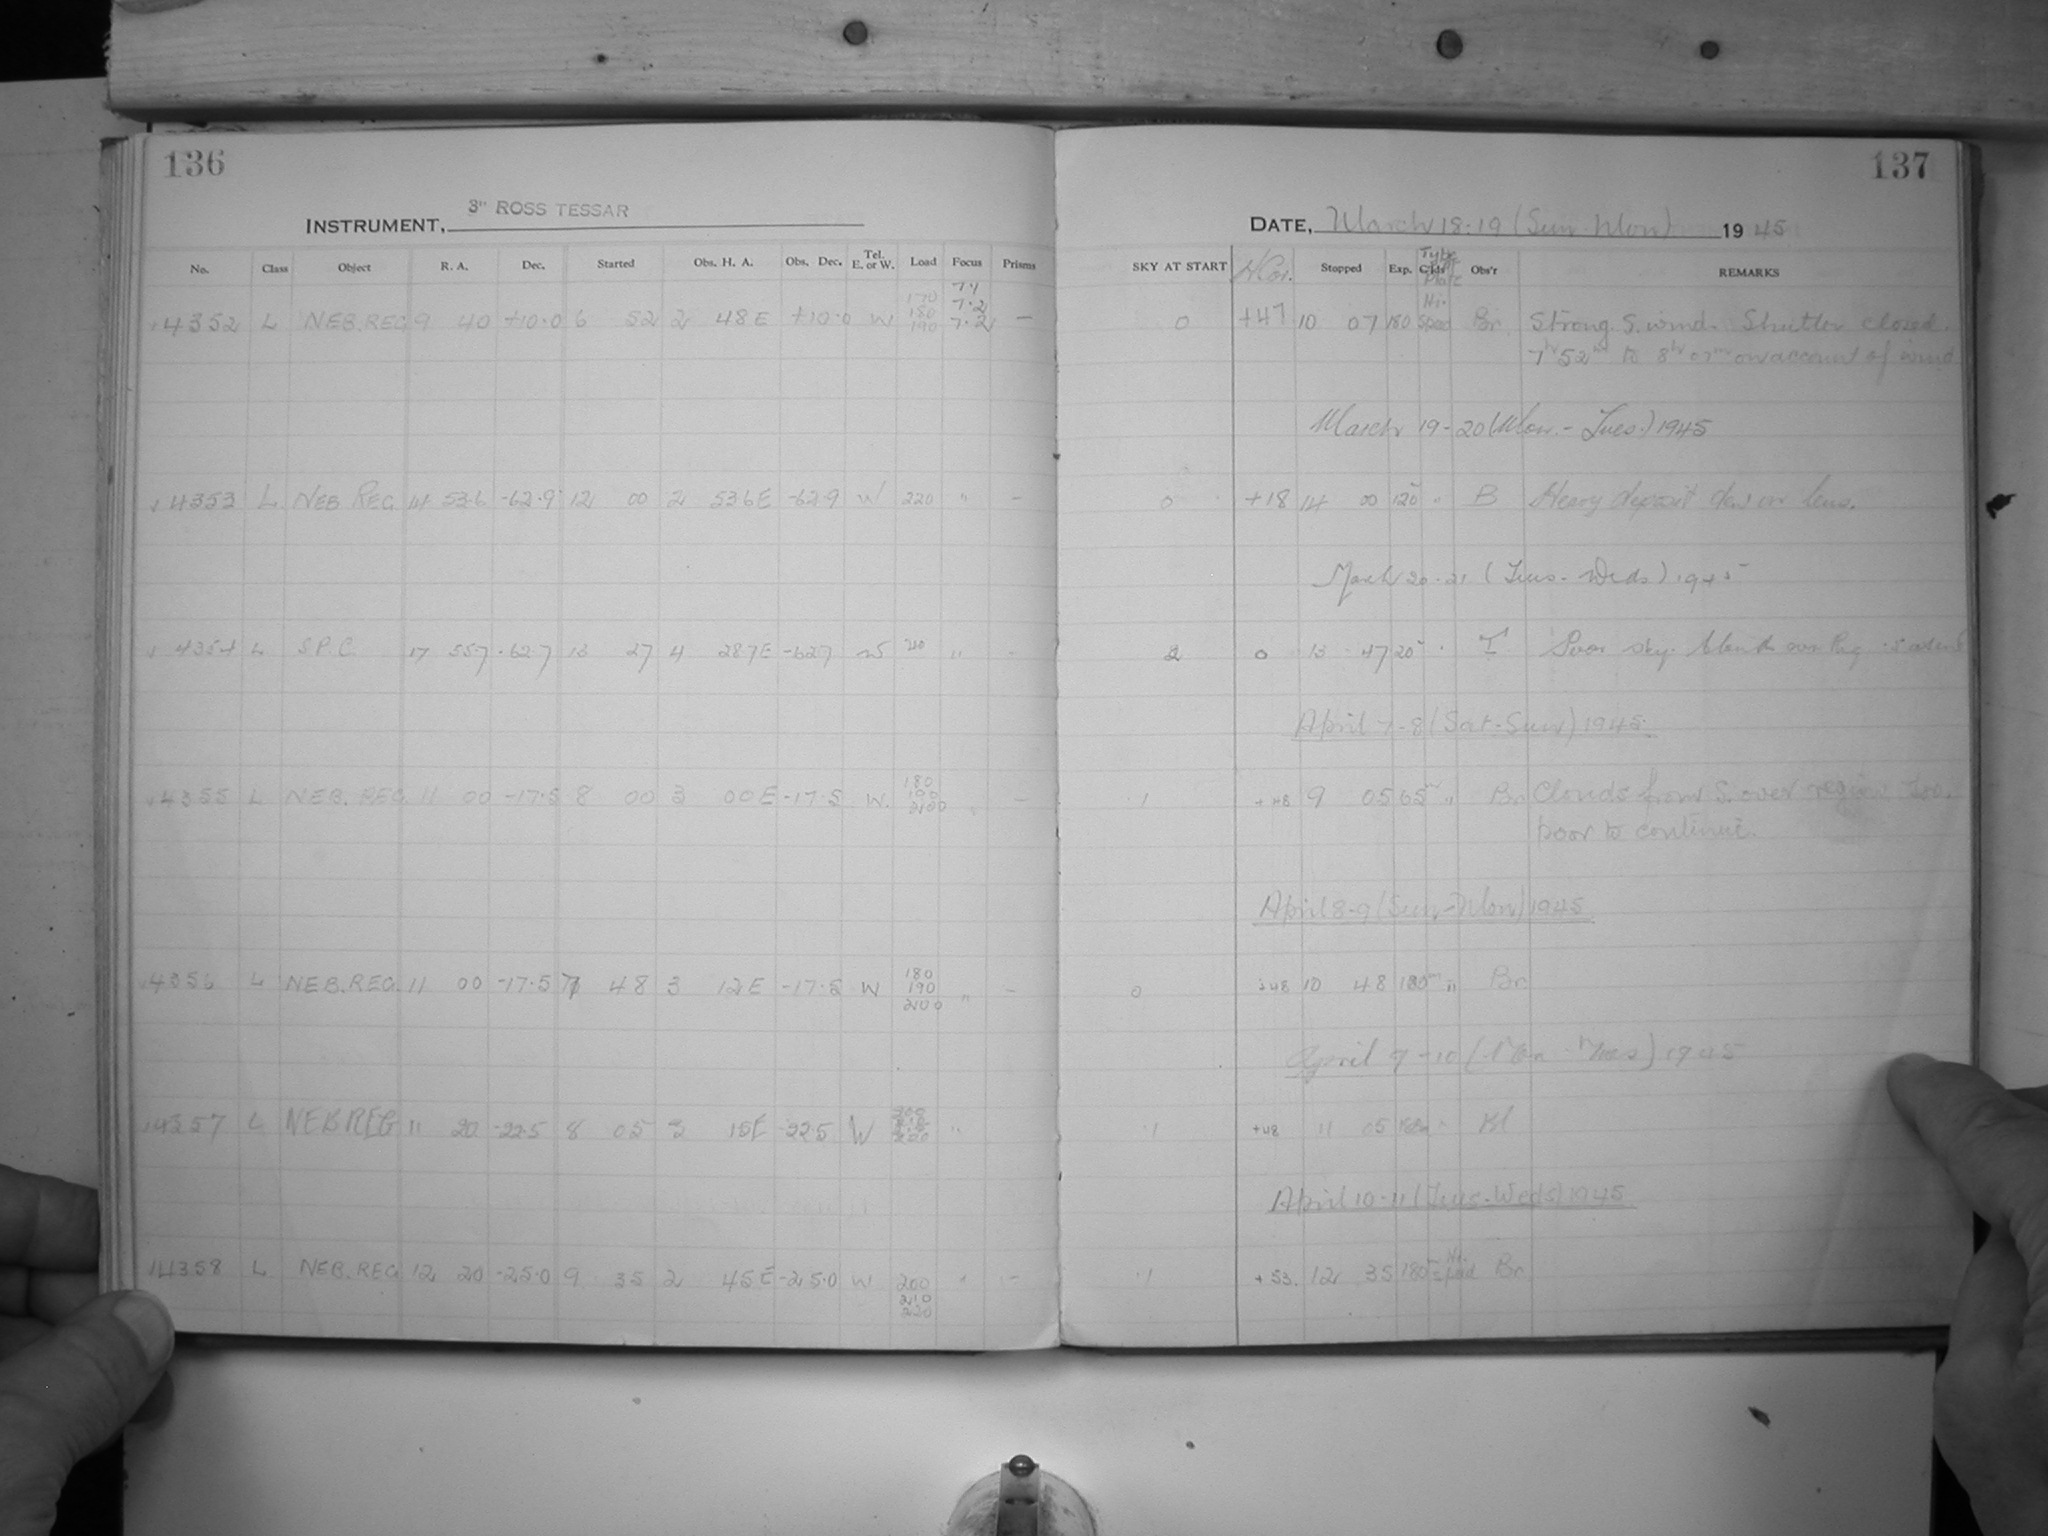 136
137
INSTRUMENT, 3" ROSS TESSAR
DATE, March 18-19 (Sun-Mon) 1945
No. Class Object R. A. Dec. Started Obs. H. A. Obs. Dec. Tel. E. or W. Load Focus Prisms SKY AT START H Cor. Stopped Exp. Type Plate Obs'r REMARKS
4352 L NEB.REG 9 40 +10.0 6 52 2 48E +10.0 W 170 180 190 7.1 7.2 7.2 — 0 +47 10 07 180 Hi. Speed Br Strong S. wind. Shutter closed
7hr 52m to 8hr 07m on account of wind
March 19-20 (Mon.-Tues.) 1945
4353 L NEB REG. 14 53.6 -62.9 12 00 2 53.6E -62.9 W 220 " — 0 +18 14 00 120 " B Heavy deposit dew on lens.
March 20-21 (Tues-Weds) 1945
4354 L S.P.C. 17 55.7 -62.7 13 27 4 28.7E -62.7 W " 2 0 13 47 20 Poor sky.
April 7-8 (Sat-Sun) 1945.
4355 L NEB. REG. 11 00 -17.5 8 00 3 00E -17.5 W. 180 190 200 " — 1 +48 9 05 65 " Br Clouds from S. over region Too
poor to continue.
April 8-9 (Sun-Mon) 1945
4356 L NEB.REG. 11 00 -17.5 7 48 3 12E -17.5 W 180 190 200 " — 0 +48 10 48 180 " Br
April 9-10 (Mon-Tues) 1945
4357 L NEB REG 11 20 -22.5 8 05 3 15E -22.5 W 200 210 220 " 1 +48 11 05 180 " Bl
April 10-11 (Tues-Weds) 1945
4358 L NEB.REG 12 20 -25.0 9 35 2 45E -25.0 W 200 210 220 " — 1 +53. 12 35 180 Hi. Speed Br